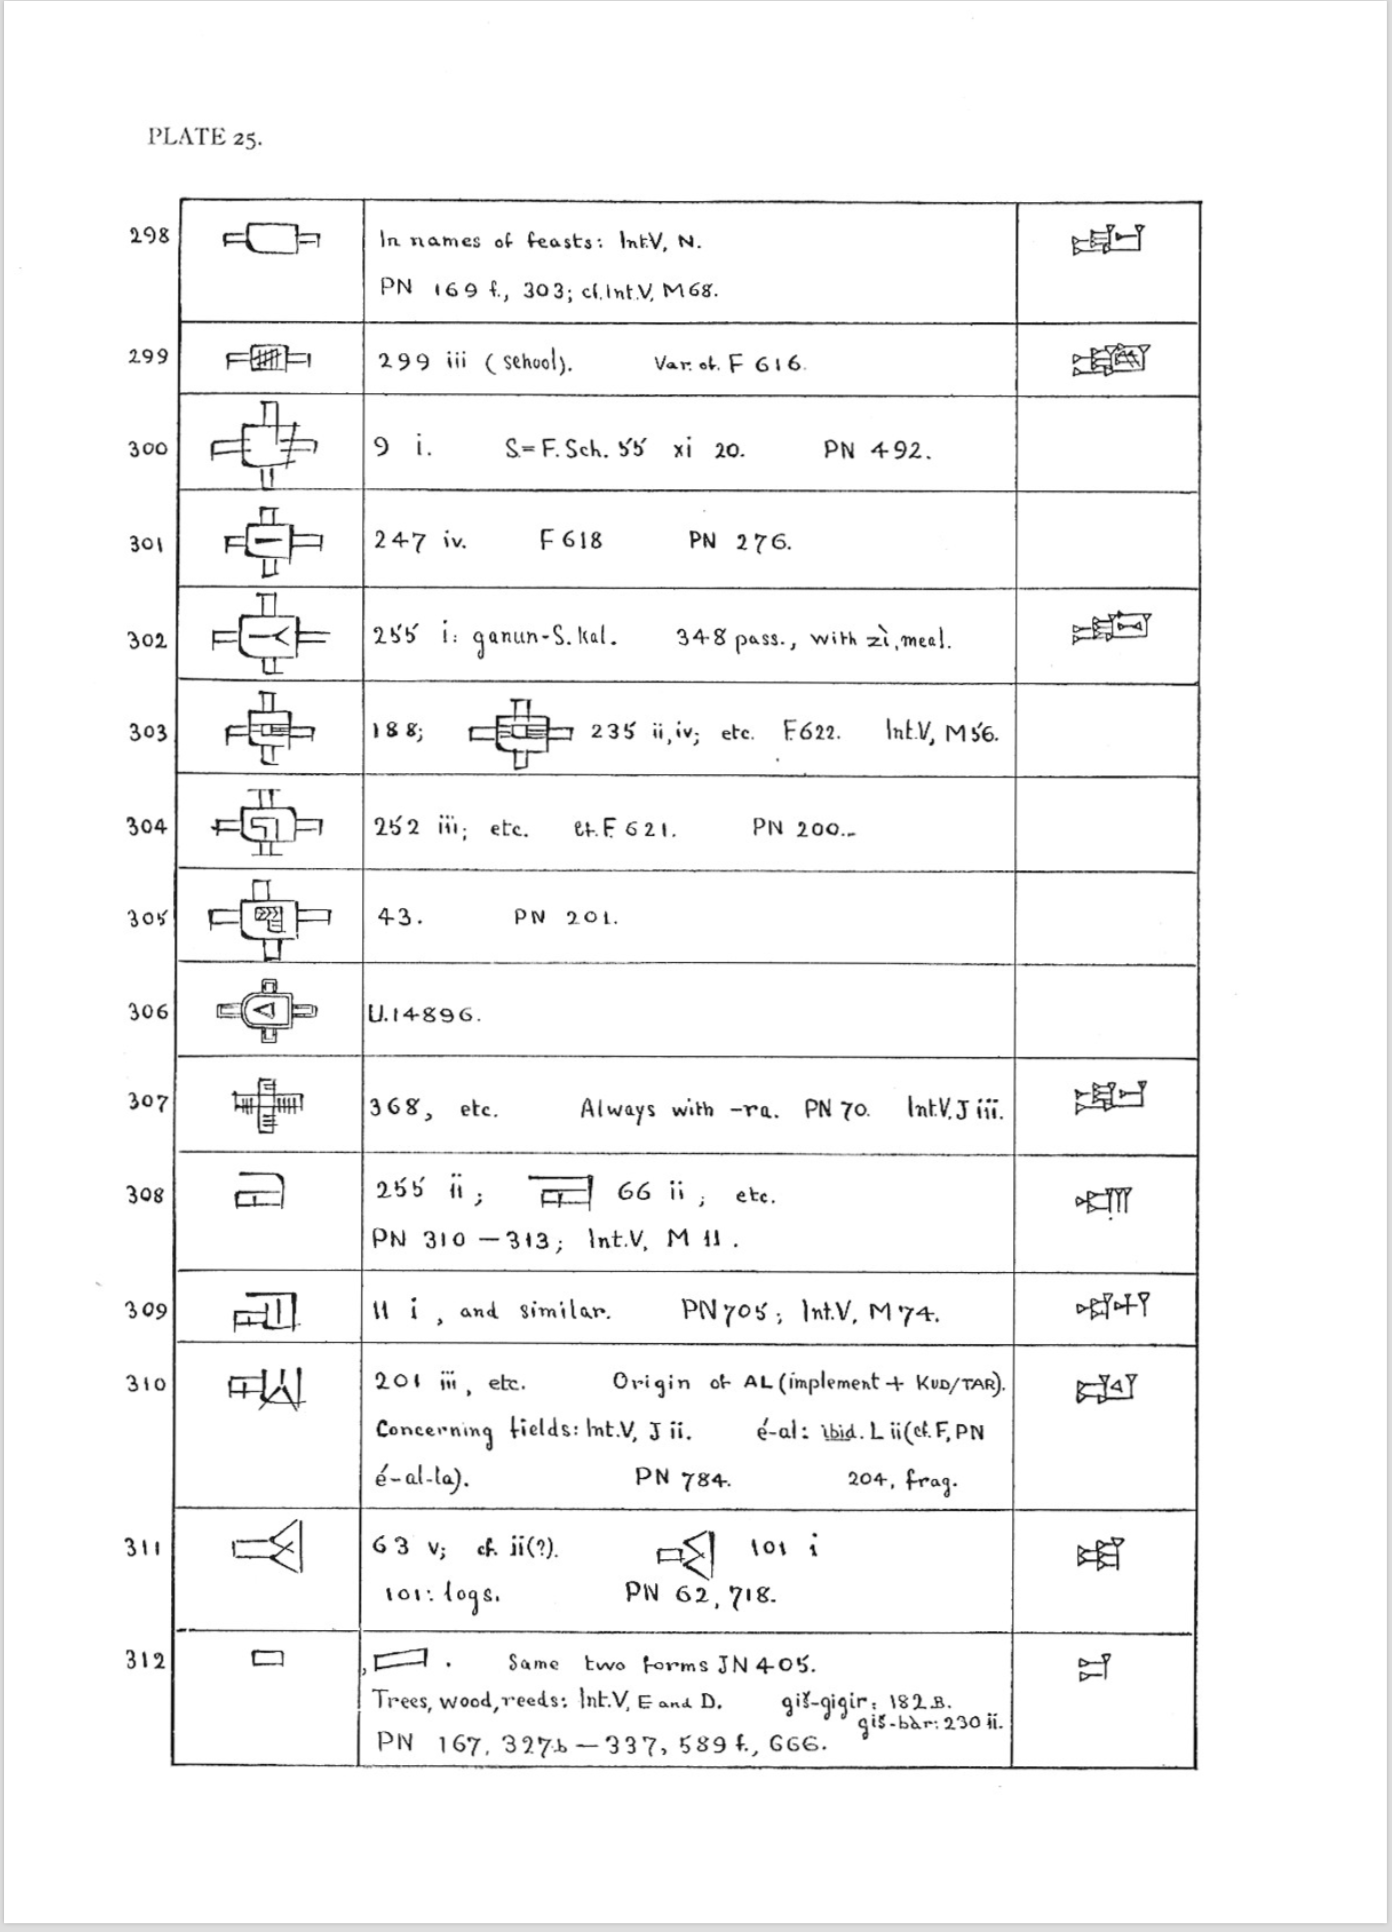 PLATE 25.
298 In names of feasts: Int.V, N.
PN 169 f., 303; cf. Int.V, M 68.
299 299 iii (school). Var. of. F 616.
300 9 i. S.= F. Sch. 55 xi 20. PN 492.
301 247 iv. F 618 PN 276.
302 255 i: ganun-S. kal. 348 pass., with zì, meal.
303 188; 235 ii, iv; etc. F.622. Int.V, M 56.
304 252 iii; etc. cf. F. 621. PN 200.
305 43. PN 201.
306 U.14896.
307 368, etc. Always with -ra. PN 70. Int.V. J iii.
308 255 ii; 66 ii, etc.
PN 310 – 313; Int.V, M 11.
309 11 i, and similar. PN 705; Int.V, M 74.
310 201 iii, etc. Origin of AL (implement + KUD/TAR).
Concerning fields: Int.V, J ii. é-al: ibid. L ii (cf. F, PN
é-al-la). PN 784. 204, frag.
311 63 v; cf. ii(?). 101 i
101: logs. PN 62, 718.
312 , . Same two forms JN 405.
Trees, wood, reeds: Int.V, E and D. giš-gigir: 182 B.
giš-bàr: 230 ii.
PN 167, 327b – 337, 589 f., 666.